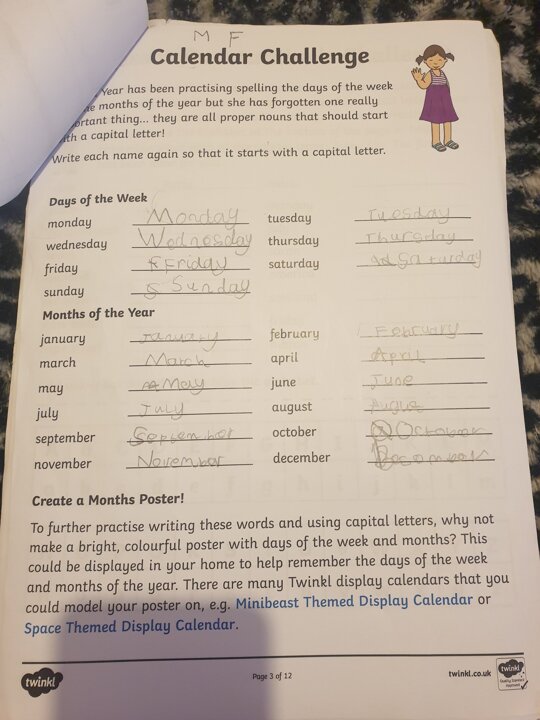 M F
Calendar Challenge
Year has been practising spelling the days of the week
months of the year but she has forgotten one really
thing... they are all proper nouns that should start
a capital letter!
Write each name again so that it starts with a capital letter.
Days of the Week
monday Monday tuesday Tuesday
wednesday Wednesday thursday Thursday
friday Friday saturday Saturday
sunday S Sunday
Months of the Year
january January february February
march March april April
may May june June
july July august
september September october October
november November december
Create a Months Poster!
To further practise writing these words and using capital letters, why not
make a bright, colourful poster with days of the week and months? This
could be displayed in your home to help remember the days of the week
and months of the year. There are many Twinkl display calendars that you
could model your poster on, e.g. Minibeast Themed Display Calendar or
Space Themed Display Calendar.
twinkl Page 3 of 12 twinkl.co.uk twinkl